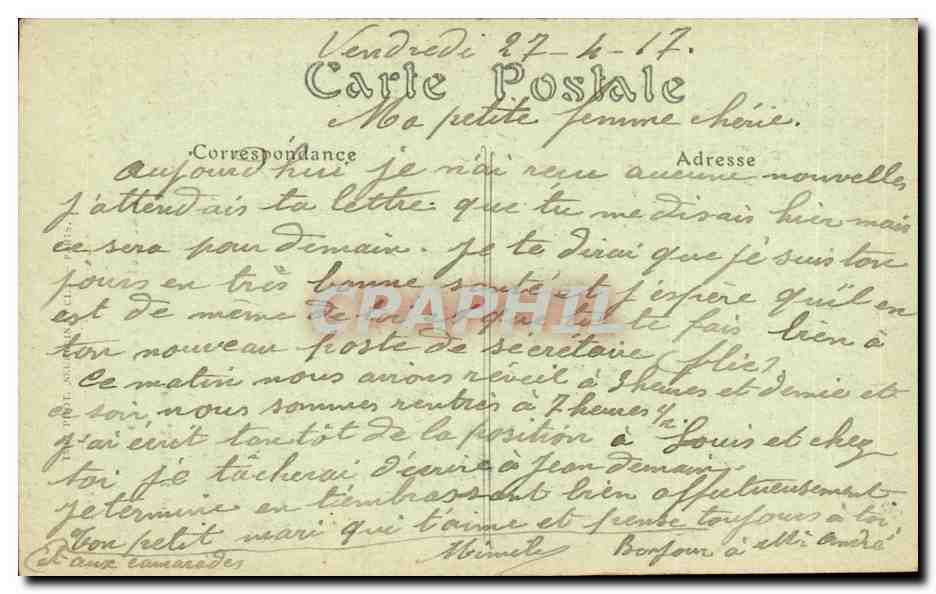 Vendredi 27-4-17.
Carte Postale
Ma petite femme chérie.
Correspondance
Adresse
Aujourd'hui je n'ai reçu aucune nouvelles
j'attendais ta lettre que tu me disais hier mais
ce sera pour demain. Je te dirai que je suis tou
jours en très bonne santé et j'espère qu'il en
est de même de toi et que tu te fais bien à
ton nouveau poste de secrétaire (flic)
Ce matin nous avions réveil à 3 heures et demie et
ce soir nous sommes rentrés à 7 heures ½
j'ai écrit tantôt de la position à Louis et chez
toi je tâcherai d'écrire à Jean demain,
je termine en t'embrassant bien affectueusement
Ton petit mari qui t'aime et pense toujours à toi,
Bonjour à Mr André
et aux camarades
CPAPHIL